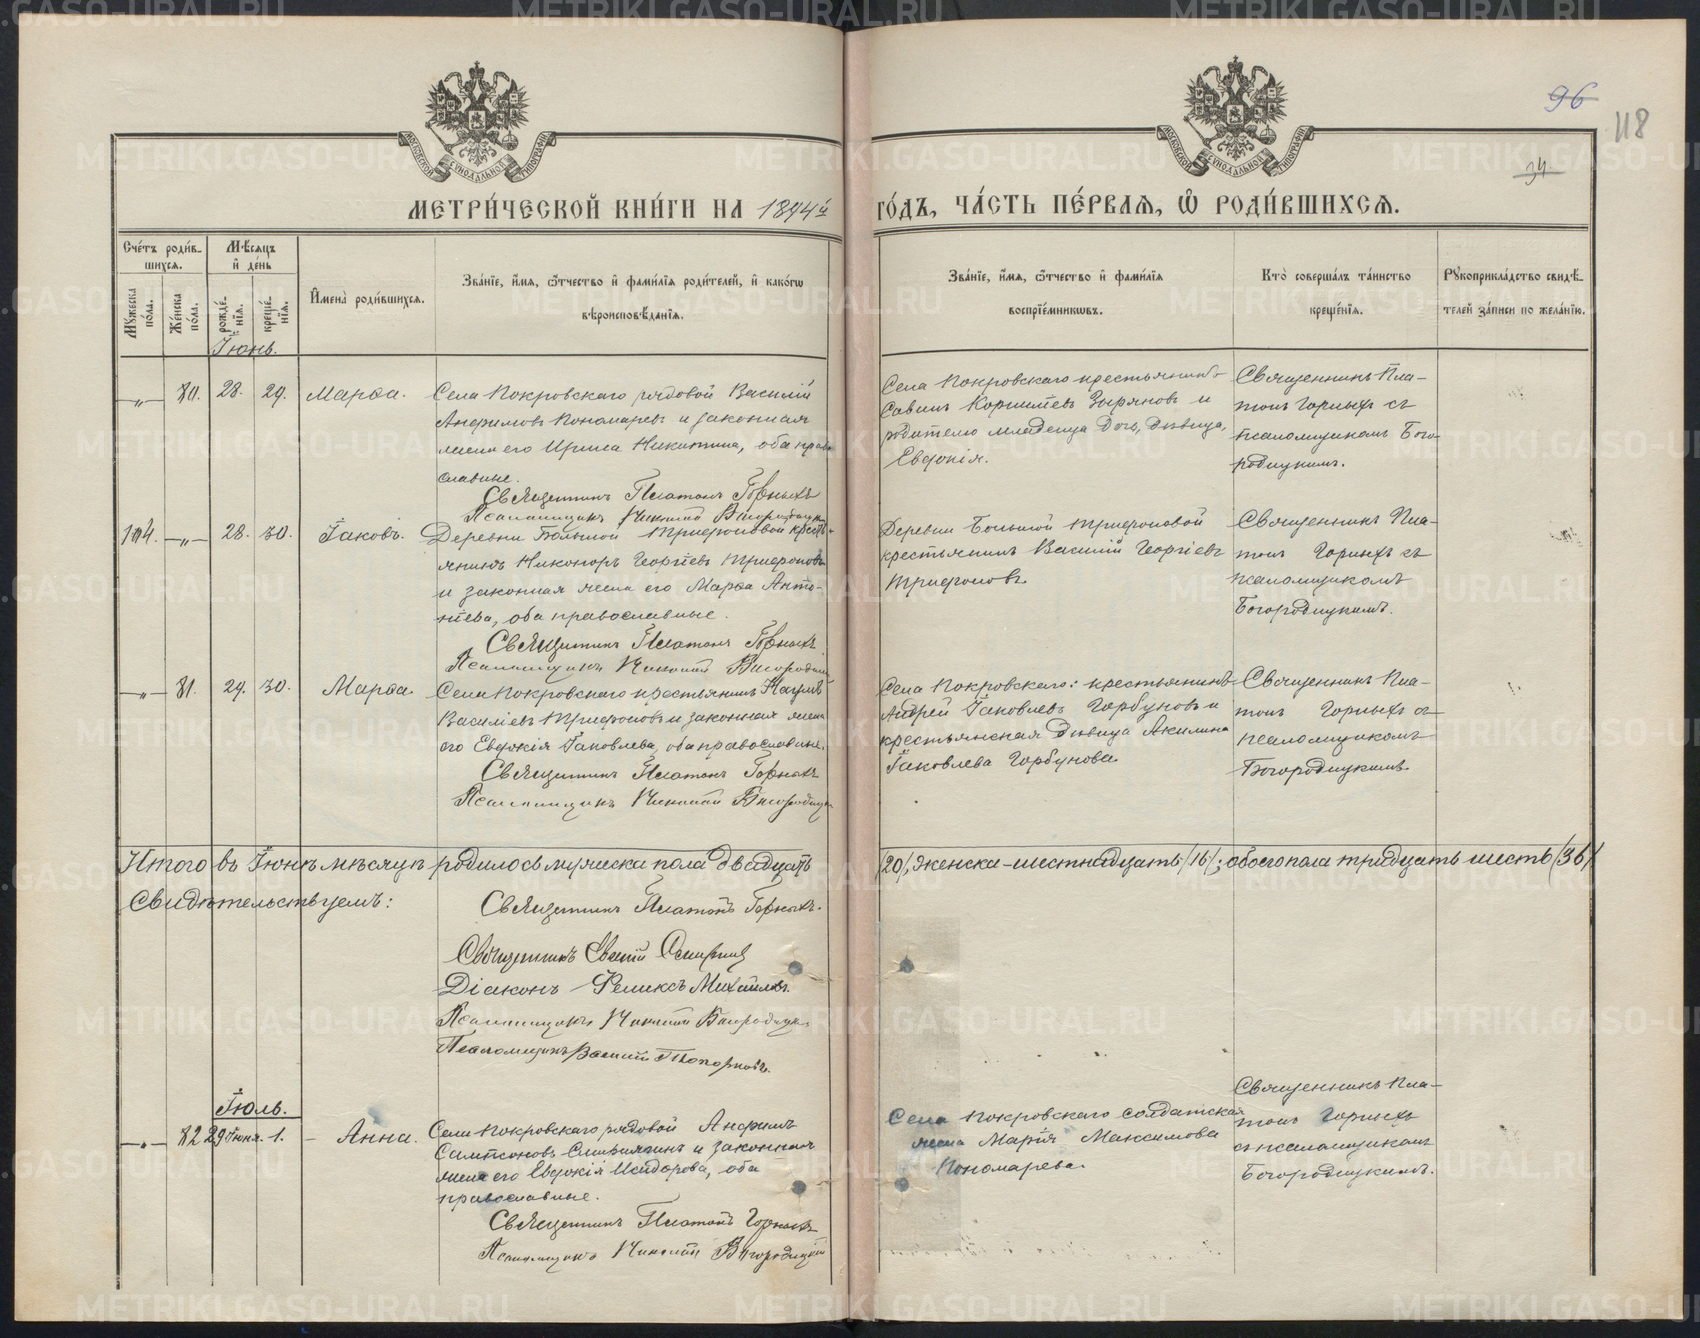 96
118
34.
МЕТРИ́ЧЕСКОЙ КНИ́ГИ НА 1894й ГО́ДЪ, ЧА́СТЬ ПЕ́РВАЯ, Ѿ РОДИ́ВШИХСЯ.
Сче́тъ роди́в-
шихся.
Мꙋжеска по́ла.
Же́нска по́ла.
Мѣ́сяцъ и де́нь
рожде́-
нїя.
креще́-
нїя.
Имена̀ роди́вшихся.
Зва́нїе, и́мя, ѻ́тчество и фами́лїя роди́телей, и како́гѡ
вѣроисповѣ́данїя.
Зва́нїе, и́мя, ѻ́тчество и фами́лїя
воспрїе́мникѡвъ.
Кто̀ соверша́лъ та́инство
креще́нїя.
Рꙋкоприкла́дство свидѣ́-
телей за́писи по жела́нїю.
Іюнь.
—„— 80. 28. 29. Марѳа.
Села Покровскаго рядовой Василій
Анфимовъ Пономаревъ и законная
жена его Ирина Никитина, оба право
славные.
Священникъ Платонъ Горныхъ
Псаломщикъ Николай Богородицкій
Села Покровскаго крестьянинъ
Савинъ Корнилѣевъ Зыряновъ и
родителю младенца Дочь, Дѣвица,
Евдокія.
Священникъ Пла-
тонъ Горныхъ съ
псаломщикомъ Бого-
родицкимъ.
104. —„— 28. 30. Іаковъ.
Деревни Большой Трифоновой кресть-
янинъ Никоноръ Георгіевъ Трифоновъ
и законная жена его Марѳа Анто-
ніева, оба православные.
Священникъ Платонъ Горныхъ
Псаломщикъ Николай Богородицк
Деревни Большой Трифоновой
крестьянинъ Василій Георгіевъ
Трифоновъ.
Священникъ Пла-
тонъ Горныхъ съ
псаломщикомъ
Богородицкимъ.
—„— 81. 29. 30. Марѳа.
Села Покровскаго крестьянинъ Наумъ
Василіевъ Трифоновъ и законная жена
его Евдокія Іаковлева, оба православные.
Священникъ Платонъ Горныхъ
Псаломщикъ Николай Богородицк
Села Покровскаго: крестьянинъ
Андрей Іаковлевъ Горбуновъ и
крестьянская дѣвица Акилина
Іаковлева Горбунова.
Священникъ Пла-
тонъ Горныхъ съ
псаломщикомъ
Богородицкимъ.
Итого въ Іюнѣ мѣсяцѣ родилось мужеска пола двадцать (20), женска — шестнадцать (16); обоего пола тридцать шесть (36)
Свидѣтельствуемъ: Священникъ Платонъ Горныхъ.
Священникъ
Діаконъ Феликсъ Михайловъ.
Псаломщикъ Николай Богородицк
Псаломщикъ Василій Топорковъ.
Іюль.
—„— 82 29 Іюня. 1. – Анна.
Села Покровскаго рядовой Анфимъ
Самсоновъ и законная
жена его Евдокія Исидорова, оба
православные.
Священникъ Платонъ Горныхъ
Псаломщикъ Николай Богородицкій
Села Покровскаго солдатская
жена Марія Максимова
Пономарева.
Священникъ Пла-
тонъ Горныхъ
съ псаломщикомъ
Богородицкимъ.
METRIKI.GASO-URAL.RU